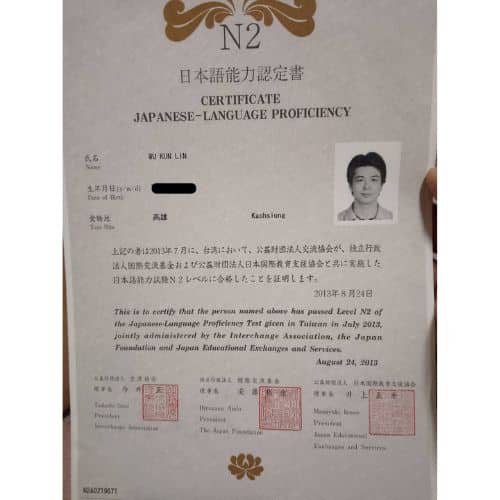 N2
日本語能力認定書
CERTIFICATE
JAPANESE-LANGUAGE PROFICIENCY
氏名 WU KUN LIN
Name
生年月日(y/m/d)
Date of Birth
受験地 高雄 Kaohsiung
Test Site
上記の者は2013年7月に、台湾において、公益財団法人交流協会が、独立行政
法人国際交流基金および公益財団法人日本国際教育支援協会と共に実施した
日本語能力試験N2レベルに合格したことを証明します。
2013年8月24日
This is to certify that the person named above has passed Level N2 of
the Japanese-Language Proficiency Test given in Taiwan in July 2013,
jointly administered by the Interchange Association, the Japan
Foundation and Japan Educational Exchanges and Services.
August 24, 2013
公益財団法人 交流協会
理事長 今井 正
Tadashi Imai
President
Interchange Association
独立行政法人 国際交流基金
理事長 安藤 裕康
Hiroyasu Ando
President
The Japan Foundation
公益財団法人 日本国際教育支援協会
理事長 井上 正幸
Masayuki Inoue
President
Japan Educational
Exchanges and Services
N2A027967T